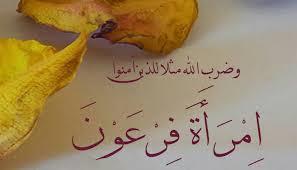 وضرب الله مثلا للذين امنوا
اِمْرَأَةَ فِرْعَوْنَ